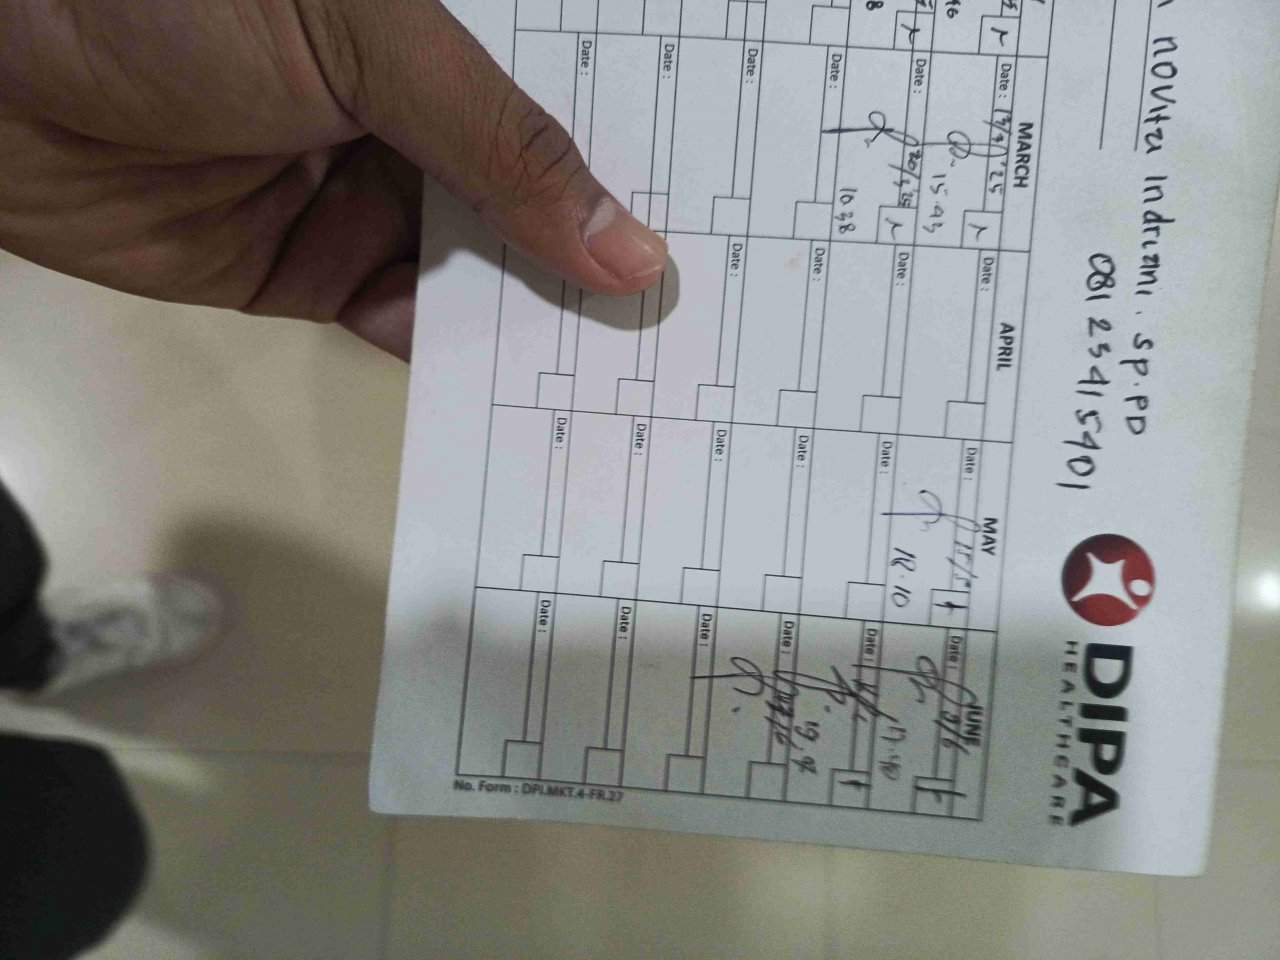 novita Indriani. SP.PD
08123415401
DIPA
HEALTHCARE
MARCH
APRIL
MAY
JUNE
Date : 13/3/'25
Date :
Date : 15/5
Date :
15.43
18.10
17.40
Date : 20/3 '25
Date :
Date :
Date :
10.38
Date :
Date :
Date :
Date :
Date :
Date :
Date :
Date :
Date :
Date :
Date :
Date :
Date :
Date :
No. Form : DPI.MKT.4-FR.27